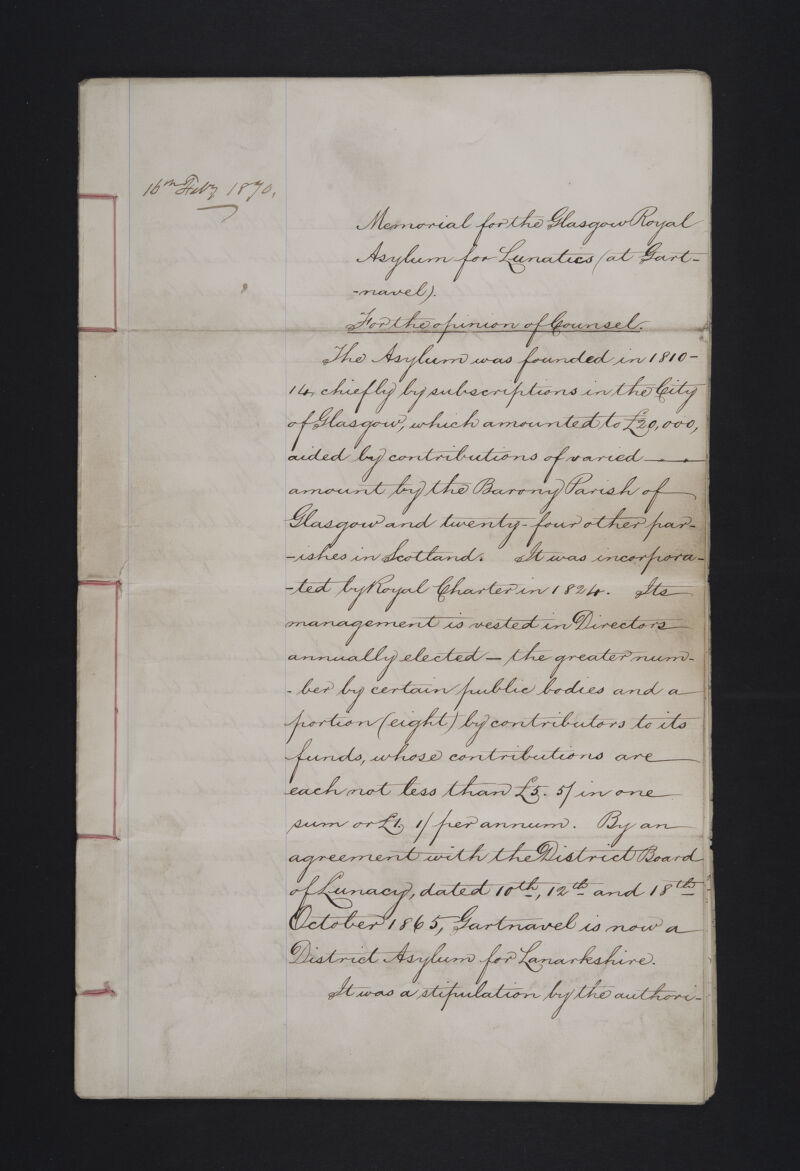 16th Feby 1870.
Memorial for the Glasgow Royal
Asylum for Lunatics (at Gart-
-navel).
For the opinion of Counsel.
The Asylum was founded in 1810-
14, chiefly by subscriptions in the City
of Glasgow, which amounted to £20,000,
aided by contributions of varied
amount by the Barony Parish of
Glasgow and twenty-four other par-
-ishes in Scotland. It was incorpora-
-ted by Royal Charter in 1824. Its
management is vested in Directors
annually elected — the greater num-
-ber by certain public bodies and a
portion (eight) by contributors to its
funds, whose contributions are
each not less than £5. 5/ in one
sum or £1, 1/ per annum. By an
agreement with the District Board
of Lunacy, dated 10th, 12th and 18th
October 1865, Gartnavel is now a
District Asylum for Lanarkshire.
It was a stipulation by the authori-